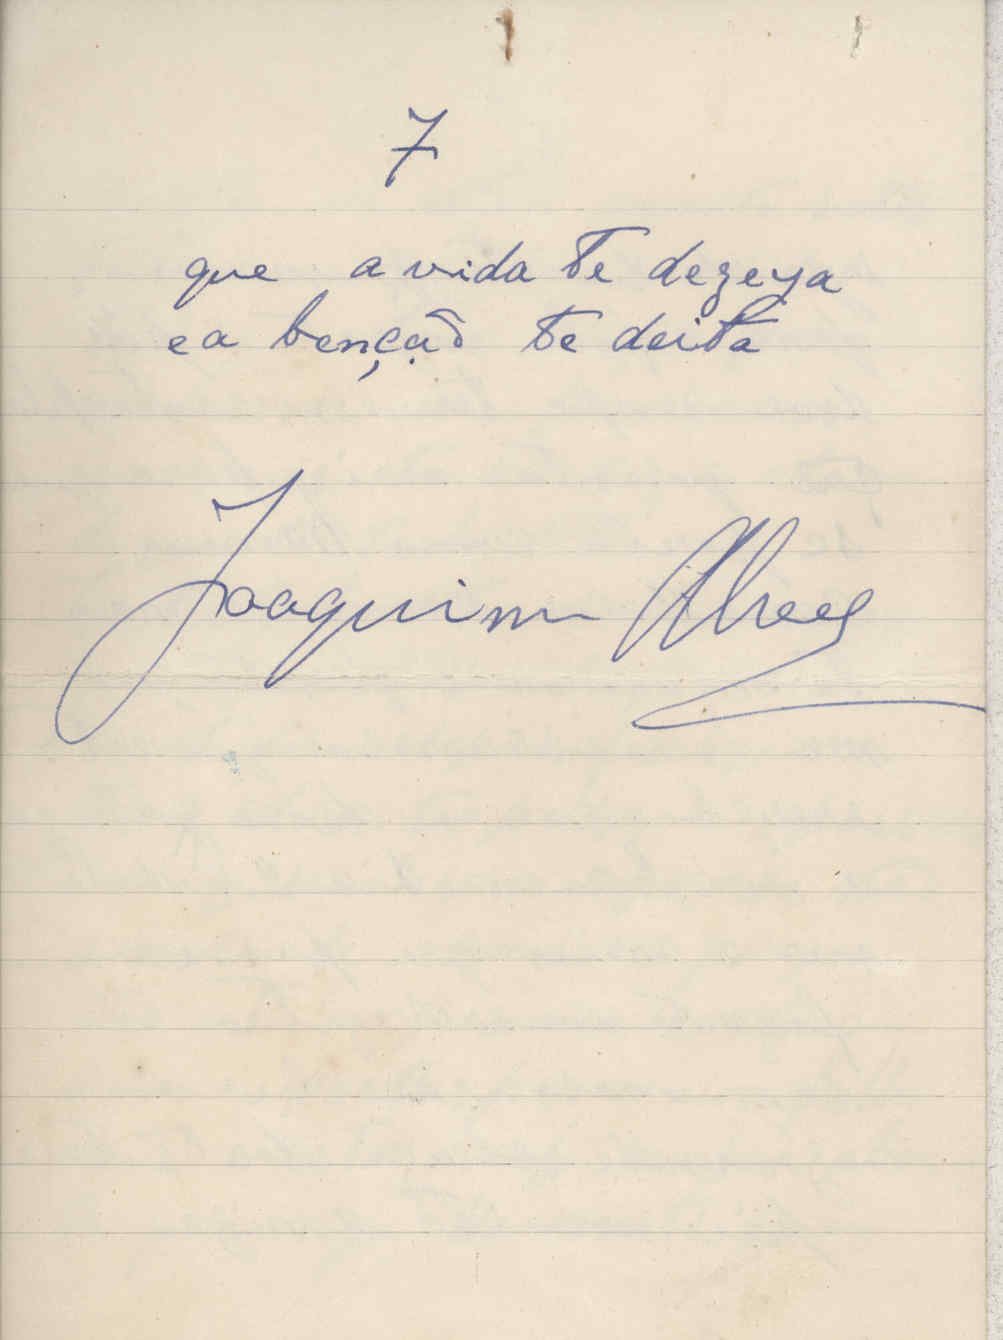 7
que a vida te dezeya
e a bençaõ te deita
Joaquim Alves